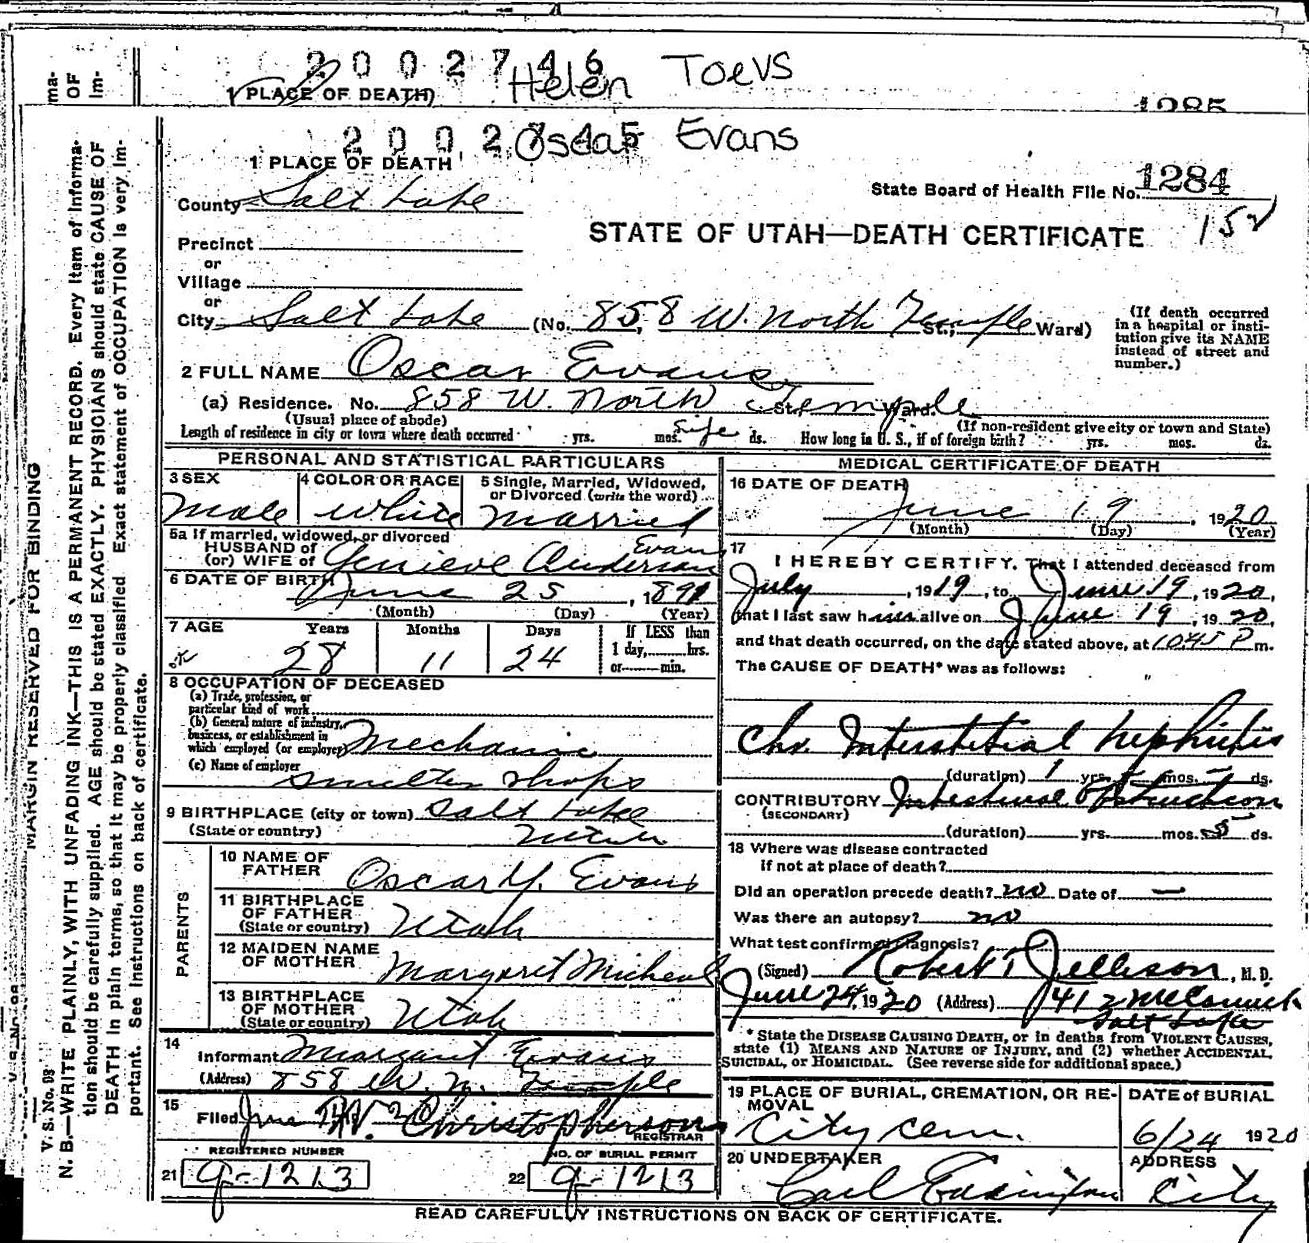 2002746 Helen Toevs
1 PLACE OF DEATH
1285
2002745 Oscar Evans
1 PLACE OF DEATH
State Board of Health File No. 1284
County Salt Lake
152
STATE OF UTAH—DEATH CERTIFICATE
Precinct
or
Village
or
City Salt Lake (No. 858 W. North Temple St.; Ward)
(If death occurred in a hospital or insti-
tution give its NAME
instead of street and
number.)
2 FULL NAME Oscar Evans
(a) Residence. No. 858 W. North Temple St., Ward.
(Usual place of abode) (If non-resident give city or town and State)
Length of residence in city or town where death occurred yrs. mos. Life ds. How long in U. S., if of foreign birth? yrs. mos. ds.
PERSONAL AND STATISTICAL PARTICULARS
3 SEX
Male
4 COLOR OR RACE
White
5 Single, Married, Widowed,
or Divorced (write the word)
Married
5a If married, widowed, or divorced
HUSBAND of
(or) WIFE of Genieve Anderson Evans
6 DATE OF BIRTH June 25, 1891
(Month) (Day) (Year)
7 AGE Years Months Days If LESS than
1 day, hrs.
or min.
28 11 24
8 OCCUPATION OF DECEASED
(a) Trade, profession, or
particular kind of work
(b) General nature of industry,
business, or establishment in
which employed (or employer) Mechanic
(c) Name of employer
Smelter Shops
9 BIRTHPLACE (city or town) Salt Lake
(State or country) Utah
PARENTS
10 NAME OF
FATHER Oscar Y. Evans
11 BIRTHPLACE
OF FATHER
(State or country) Utah
12 MAIDEN NAME
OF MOTHER Margaret Micheal
13 BIRTHPLACE
OF MOTHER
(State or country) Utah
14
Informant Margaret Evans
(Address) 858 W. N. Temple
15
Filed June Christopherson
REGISTRAR
REGISTERED NUMBER
21 9-1213
NO. OF BURIAL PERMIT
22 9-1213
MEDICAL CERTIFICATE OF DEATH
16 DATE OF DEATH
June 19, 1920
(Month) (Day) (Year)
17
I HEREBY CERTIFY, That I attended deceased from
July, 1919, to June 19, 1920,
that I last saw him alive on June 19, 1920,
and that death occurred, on the date stated above, at 1045 P m.
The CAUSE OF DEATH* was as follows:
Chr. Interstitial Nephritis
(duration) 1 yrs. mos. ds.
CONTRIBUTORY Intestinal Obstruction
(SECONDARY)
(duration) yrs. mos. 5 ds.
18 Where was disease contracted
if not at place of death?
Did an operation precede death? no Date of —
Was there an autopsy? no
What test confirmed diagnosis?
(Signed) Robert T Jellison, M. D.
June 24, 1920 (Address) 412 McCornick
Salt Lake
* State the DISEASE CAUSING DEATH, or in deaths from VIOLENT CAUSES,
state (1) MEANS AND NATURE OF INJURY, and (2) whether ACCIDENTAL,
SUICIDAL, or HOMICIDAL. (See reverse side for additional space.)
19 PLACE OF BURIAL, CREMATION, OR RE-
MOVAL
City Cem.
DATE of BURIAL
6/24 1920
20 UNDERTAKER
Carl Eddington
ADDRESS
City
READ CAREFULLY INSTRUCTIONS ON BACK OF CERTIFICATE.
ma-
OF
Im-
MARGIN RESERVED FOR BINDING
V. S. No. 98
N. B.—WRITE PLAINLY, WITH UNFADING INK—THIS IS A PERMANENT RECORD. Every item of informa-
tion should be carefully supplied. AGE should be stated EXACTLY. PHYSICIANS should state CAUSE OF
DEATH in plain terms, so that it may be properly classified. Exact statement of OCCUPATION is very im-
portant. See instructions on back of certificate.